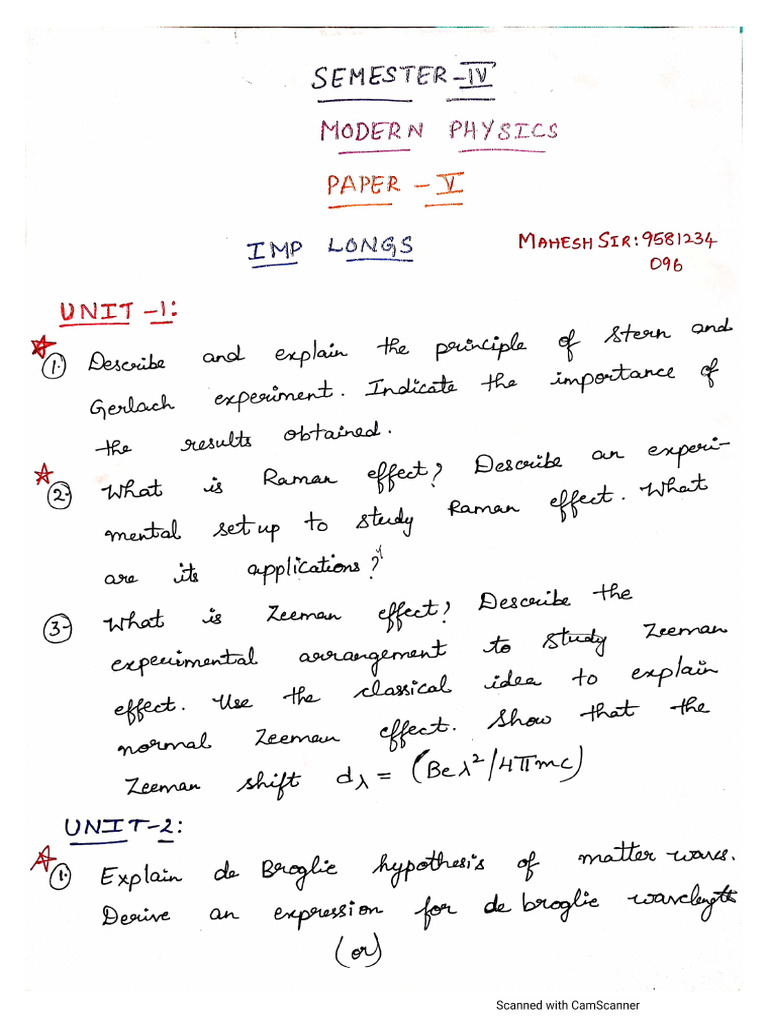 SEMESTER-IV
MODERN PHYSICS
PAPER - V
IMP LONGS
MAHESH SIR: 9581234
096
UNIT-1:
1. Describe and explain the principle of Stern and
Gerlach experiment. Indicate the importance of
the results obtained.
2. What is Raman effect? Describe an experi-
mental set up to study Raman effect. What
are its applications?
3- What is Zeeman effect? Describe the
experimental arrangement to study Zeeman
effect. Use the classical idea to explain
normal Zeeman effect. Show that the
Zeeman shift dλ = (Beλ²/4πmc)
UNIT-2:
1. Explain de Broglie hypothesis of matter waves.
Derive an expression for de broglie wavelength
(or)
Scanned with CamScanner